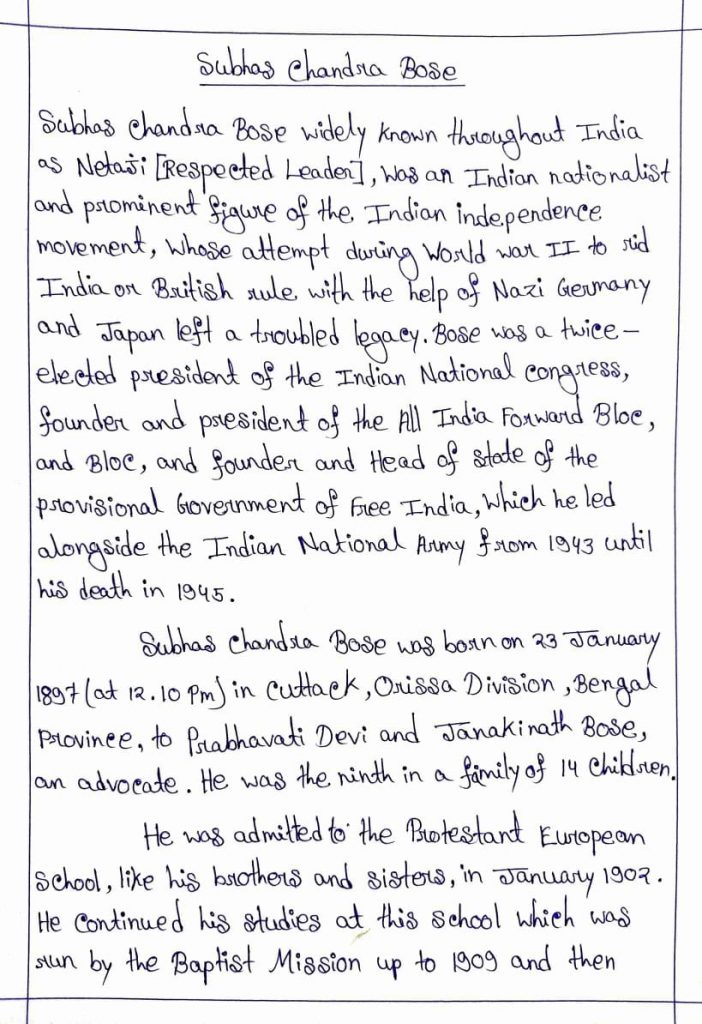 Subhas Chandra Bose
Subhas Chandra Bose widely known throughout India
as Netaji [Respected Leader], was an Indian nationalist
and prominent figure of the Indian independence
movement, whose attempt during World war II to rid
India or British rule with the help of Nazi Germany
and Japan left a troubled legacy. Bose was a twice-
elected president of the Indian National Congress,
founder and president of the All India Forward Bloc,
and Bloc, and founder and Head of state of the
provisional Government of Free India, which he led
alongside the Indian National Army from 1943 until
his death in 1945.
Subhas Chandra Bose was born on 23 January
1897 (at 12.10 Pm) in Cuttack, Orissa Division, Bengal
Province, to Prabhavati Devi and Janakinath Bose,
an advocate. He was the ninth in a family of 14 Children.
He was admitted to the Protestant European
School, like his brothers and sisters, in January 1902.
He Continued his studies at this school which was
run by the Baptist Mission up to 1909 and then